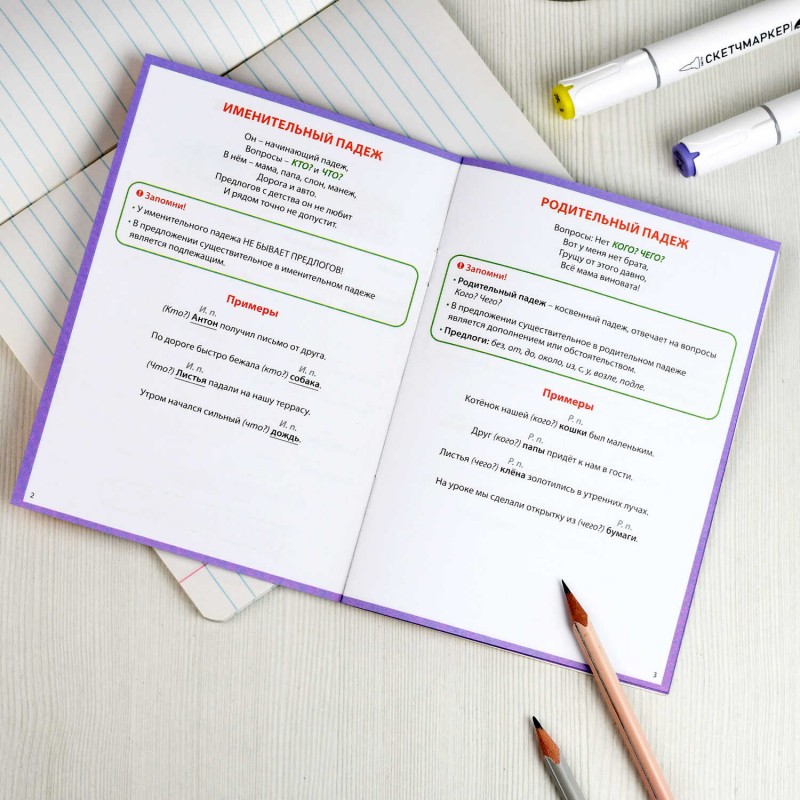 ИМЕНИТЕЛЬНЫЙ ПАДЕЖ
Он – начинающий падеж,
Вопросы – КТО? и ЧТО?
В нём – мама, папа, слон, манеж,
Дорога и авто.
Предлогов с детства он не любит
И рядом точно не допустит.
Запомни!
• У именительного падежа НЕ БЫВАЕТ ПРЕДЛОГОВ!
• В предложении существительное в именительном падеже
является подлежащим.
Примеры
И. п.
(Кто?) Антон получил письмо от друга.
И. п.
По дороге быстро бежала (кто?) собака.
И. п.
(Что?) Листья падали на нашу террасу.
И. п.
Утром начался сильный (что?) дождь.
2
РОДИТЕЛЬНЫЙ ПАДЕЖ
Вопросы: Нет КОГО? ЧЕГО?
Вот у меня нет брата,
Грущу от этого давно,
Всё мама виновата!
Запомни!
• Родительный падеж – косвенный падеж, отвечает на вопросы
Кого? Чего?
• В предложении существительное в родительном падеже
является дополнением или обстоятельством.
• Предлоги: без, от, до, около, из, с, у, возле, подле.
Примеры
Р. п.
Котёнок нашей (кого?) кошки был маленьким.
Р. п.
Друг (кого?) папы придёт к нам в гости.
Р. п.
Листья (чего?) клёна золотились в утренних лучах.
Р. п.
На уроке мы сделали открытку из (чего?) бумаги.
3
СКЕТЧМАРКЕР